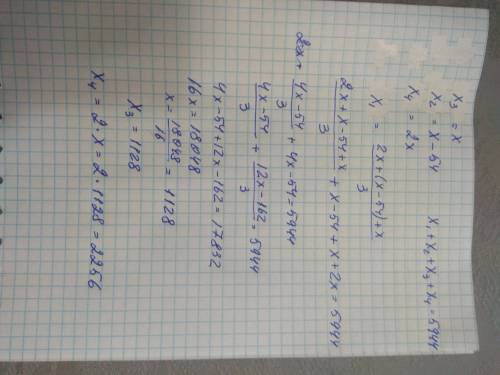 x₃ = x
x₂ = x - 54     x₁ + x₂ + x₃ + x₄ = 5944
x₄ = 2x
x₁ = (2x + (x - 54) + x) / 3
(2x + x - 54 + x) / 3 + x - 54 + x + 2x = 5944
(4x - 54) / 3 + 4x - 54 = 5944
(4x - 54) / 3 + (12x - 162) / 3 = 5944
4x - 54 + 12x - 162 = 17832
16x = 18048
x = 18048 / 16 = 1128
x₃ = 1128
x₄ = 2 · x = 2 · 1128 = 2256